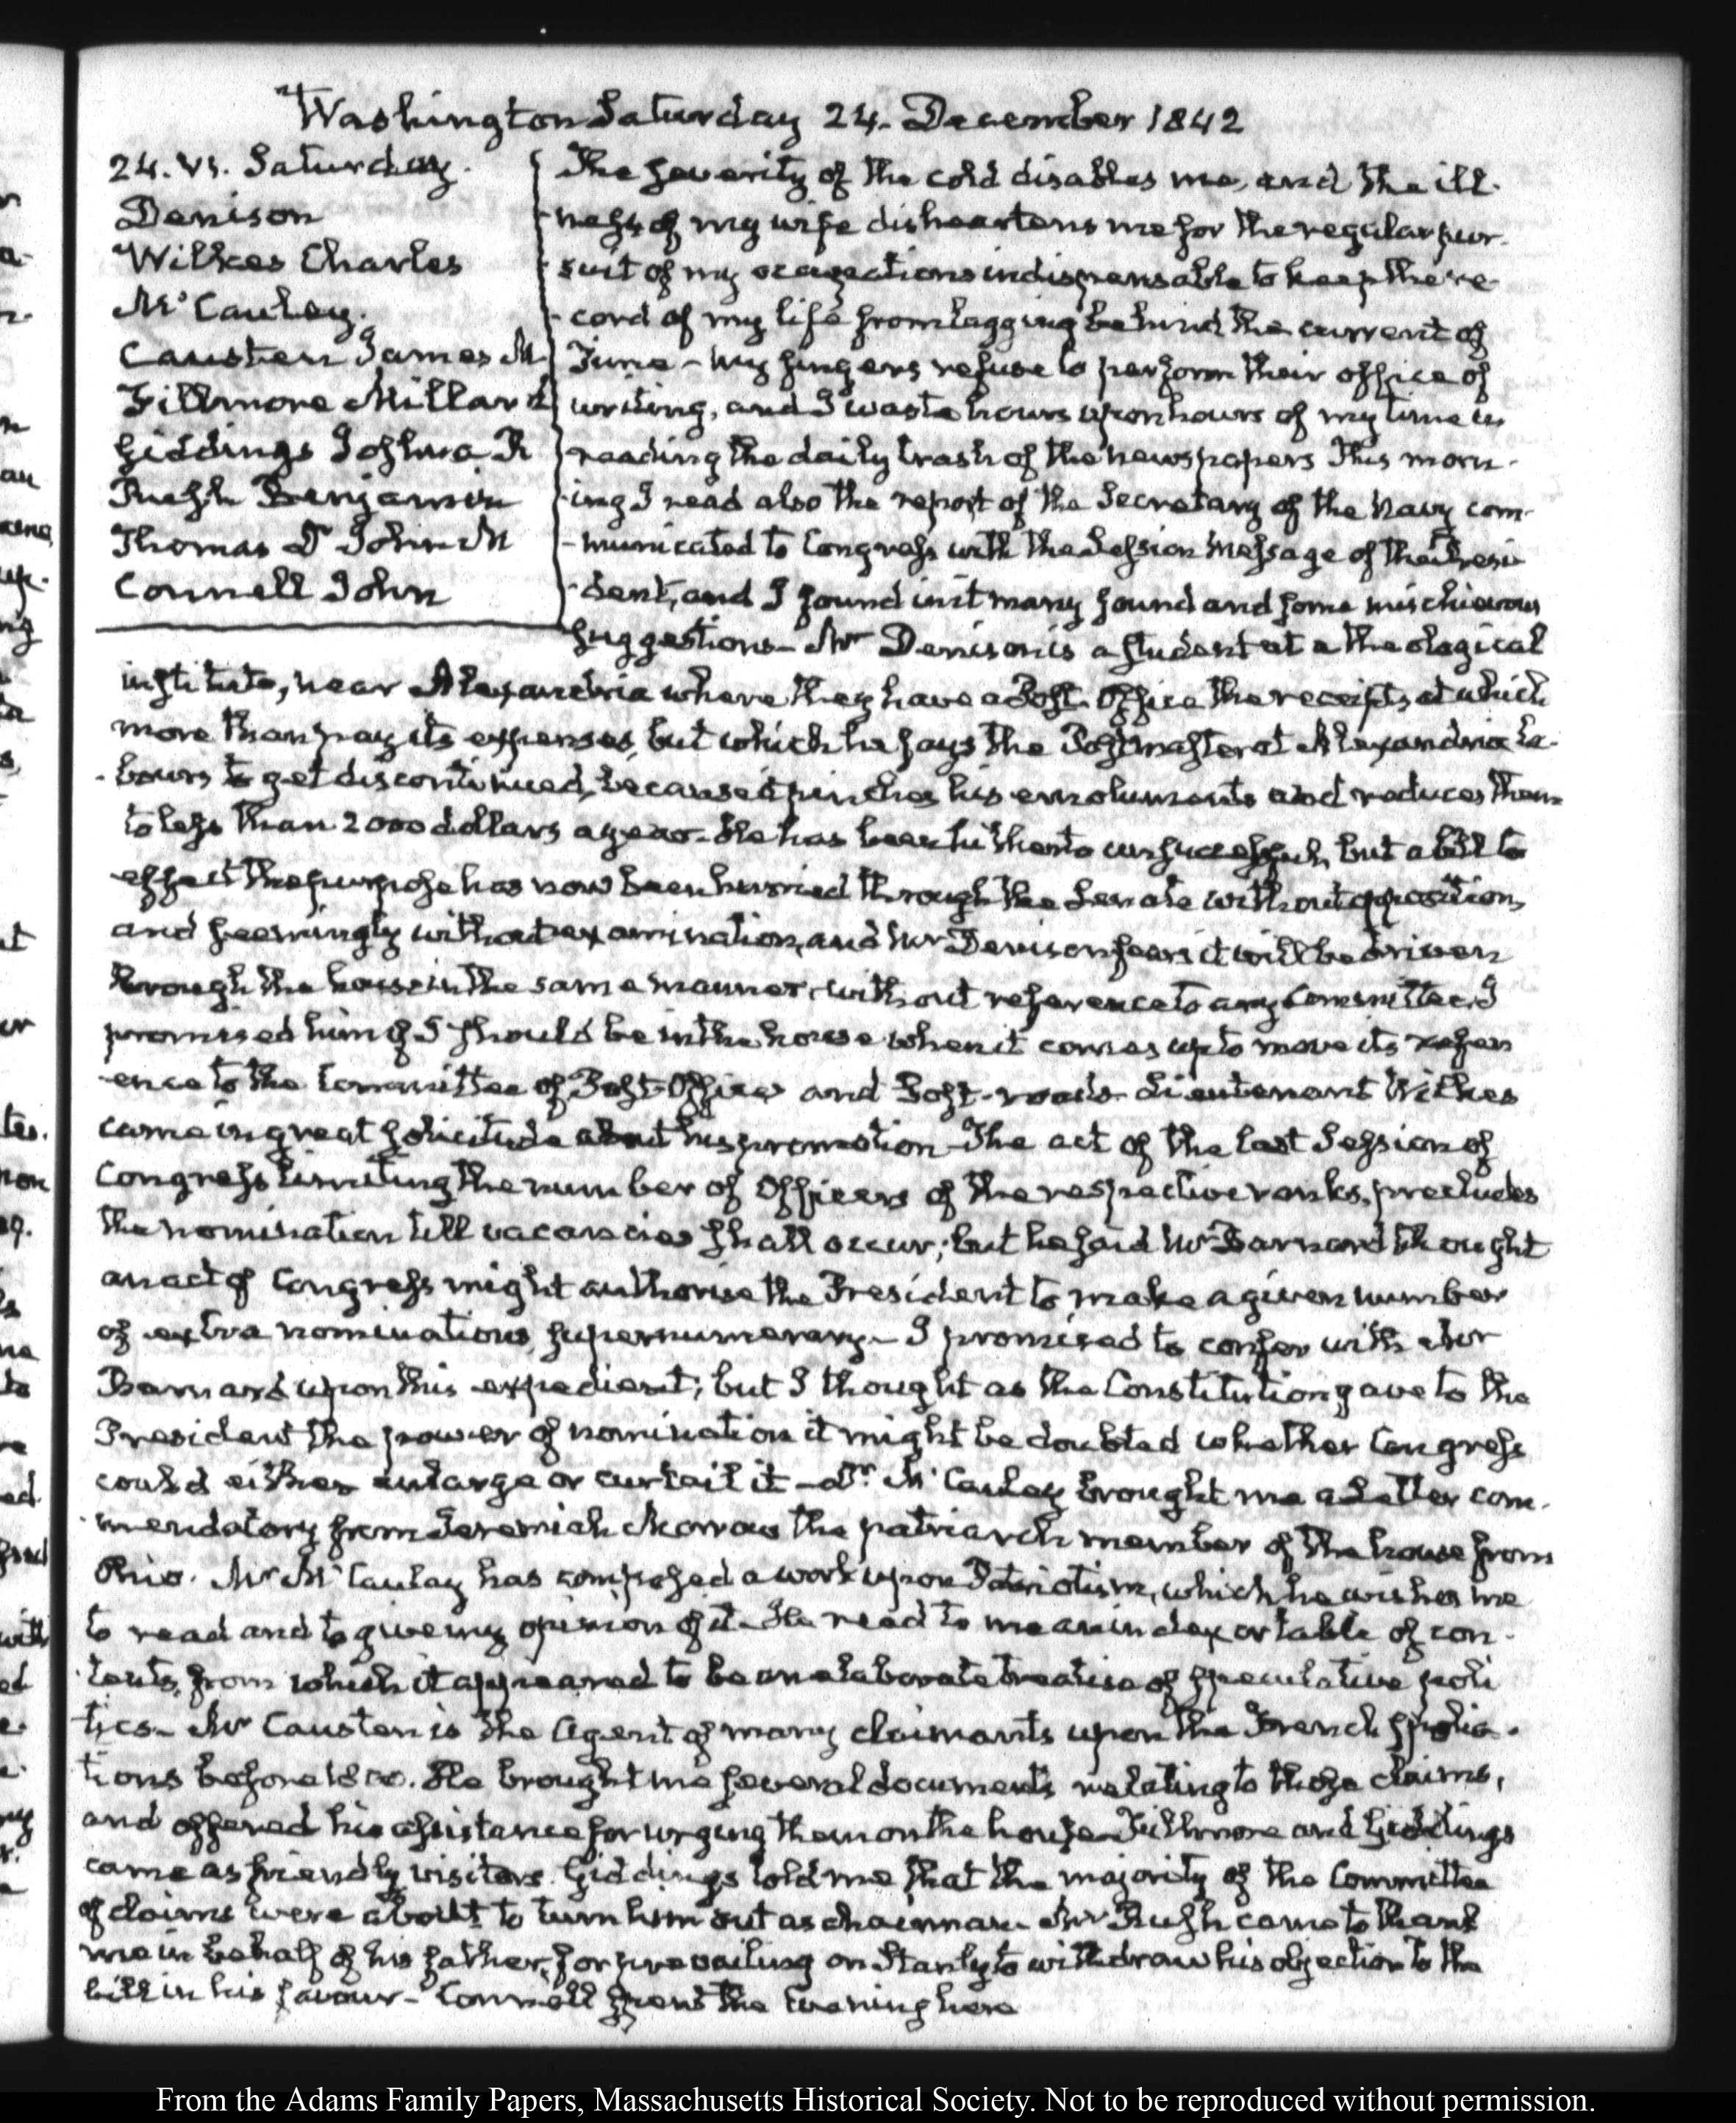 Washington Saturday 24. December 1842
24. VI. Saturday.
Denison
Wilkes Charles
McCauley.
Causten James M
Fillmore Millard
Giddings Joshua R
Rush Benjamin
Thomas Dr John M
Connell John
The severity of the cold disables me, and the ill-
ness of my wife disheartens me for the regular pur-
suit of my occupations indispensable to keep the re-
cord of my life from lagging behind the current of
Time – My fingers refuse to perform their office of
writing, and I waste hours upon hours of my time in
reading the daily trash of the newspapers This morn-
ing I read also the report of the Secretary of the Navy com-
-municated to Congress with the Session Message of the Presi-
-dent, and I found in it many sound and some mischievous
suggestions – Mr Denison is a student at a theological
institute, near Alexandria where they have a Post-Office the receipts at which
more than pay its expenses, but which he says the Postmaster at Alexandria la-
-bours to get discontinued, because it pinches his emoluments and reduces them
to less than 2000 dollars a year. He has been hitherto unsuccessful, but a bill to
effect the purpose has now been hurried through the Senate without opposition,
and seemingly without examination, and Mr Denison fears it will be driven
through the house in the same manner, without reference to any Committee. I
promised him if I should be in the house when it comes up to move its refer
-ence to the Committee of Post-Office and Post-roads. Lieutenant Wilkes
came in great solicitude about his promotion – The act of the last Session of
Congress limiting the number of Officers of the respective ranks, precludes
the nomination till vacancies shall occur; but he said Mr Barnard thought
an act of Congress might authorise the President to make a given number
of extra nominations supernumerary – I promised to confer with Mr
Barnard upon this expedient; but I thought as the Constitution gave to the
President the power of nomination it might be doubted whether Congress
could either enlarge or curtail it – Mr McCauley brought me a Letter com-
-mendatory from Jeremiah Morrow the patriarch member of the house from
Ohio. Mr McCauley has composed a work upon Patriotism, which he wishes me
to read and to give my opinion of it – He read to me an index or table of con-
-tents, from which it appeared to be an elaborate treatise of speculative poli
tics – Mr Causten is the Agent of many claimants upon the French spolia-
tions before 1800. He brought me several documents relating to those claims,
and offered his assistance for urging them on the house – Fillmore and Giddings
came as friendly visitors. Giddings told me that the majority of the Committee
of claims were about to turn him out as chairman – Mr Rush came to thank
me in behalf of his father, for prevailing on Stanly to withdraw his objection to the
bill in his favour – Connell spent the Evening here
From the Adams Family Papers, Massachusetts Historical Society. Not to be reproduced without permission.